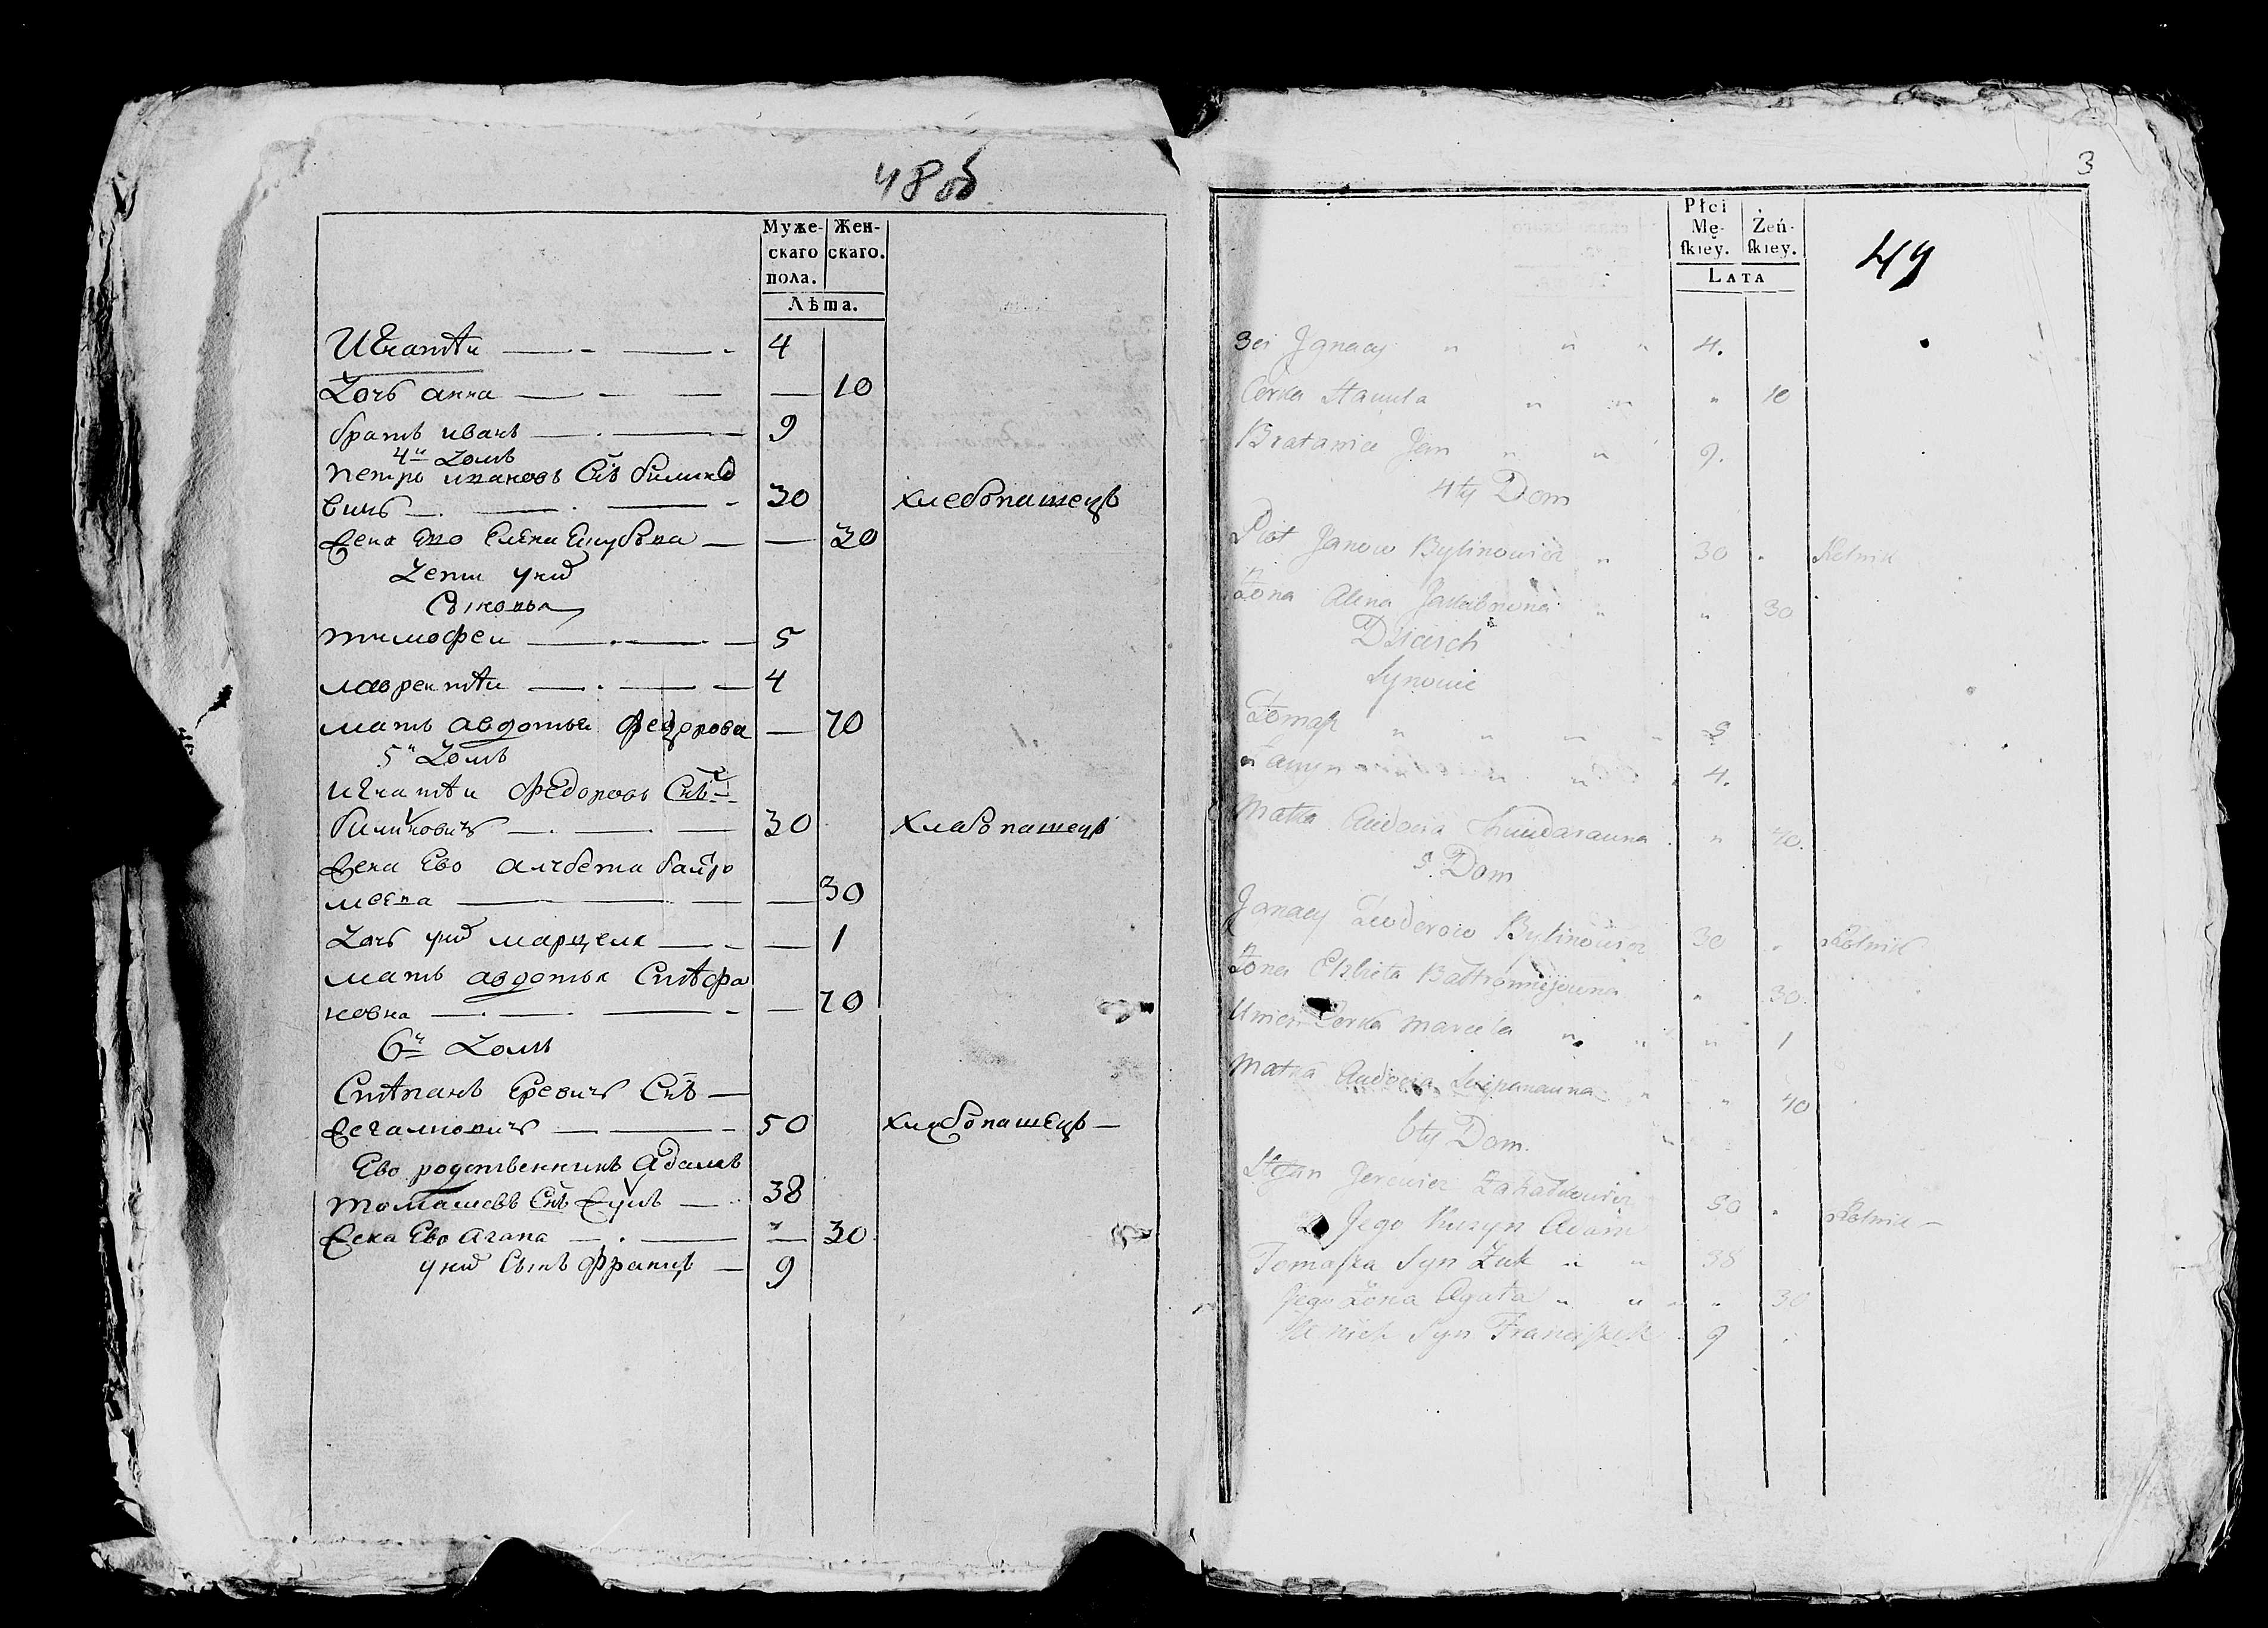 48 об
Муже- Жен-
скаго скаго.
пола.
Лѣта.
Игнатѣи 4
Дочь анна — 10
братъ иванъ 9
4й Домъ
петръ ивановъ Снъ билино
вичъ 30 хлебопашецъ
жена ево Елена Екубова — 30
Дети унй
Сыновья
тимофеи 5
лаврентѣи 4
мать авдотья федорова — 70
5й Домъ
игнатѣи федоровъ Снъ
билиновичъ 30 хлебопашецъ
жена Ево алчбета балтро
меева — 30
Дочь унй марцеля — 1
мать авдотья Стѣфа
новна — 70
6й Домъ
Стѣпанъ Еревичъ Снъ —
50 хлебопашецъ —
Ево родственникъ адамъ
томашевъ Снъ жукъ — 38
жена Ево агапа — 30
унй Сынъ францъ — 9
3
Płci
Mę- Żeń-
ſkiey. ſkiey.
LATA
49
3ci Jgnacy " " " 4.
Corka " " " 10
Jan " " 9.
4ty Dom
Piot Janow Bylinowicz " 30 " Rolnik
Żona Alena Jakubowna " " 30
Dziecich
Synowie
" " " " 5
" " 4.
Matka Audocia " 70.
5. Dom
Jgnacy Teodorow Bylinowicz 30 " Rolnik
Żona Elzbieta Bałtromiejowna " 30.
Unich Corka Marcela " " " 1
Matka Audocia " " 70
6ty Dom.
Stefan Jerewicz 50 " Rolnik —
Jego Kuzyn Adam
Tomaſza Syn Żuk " " 38
Jego Żona Agata " " " 30
Syn Franciſzek 9 "